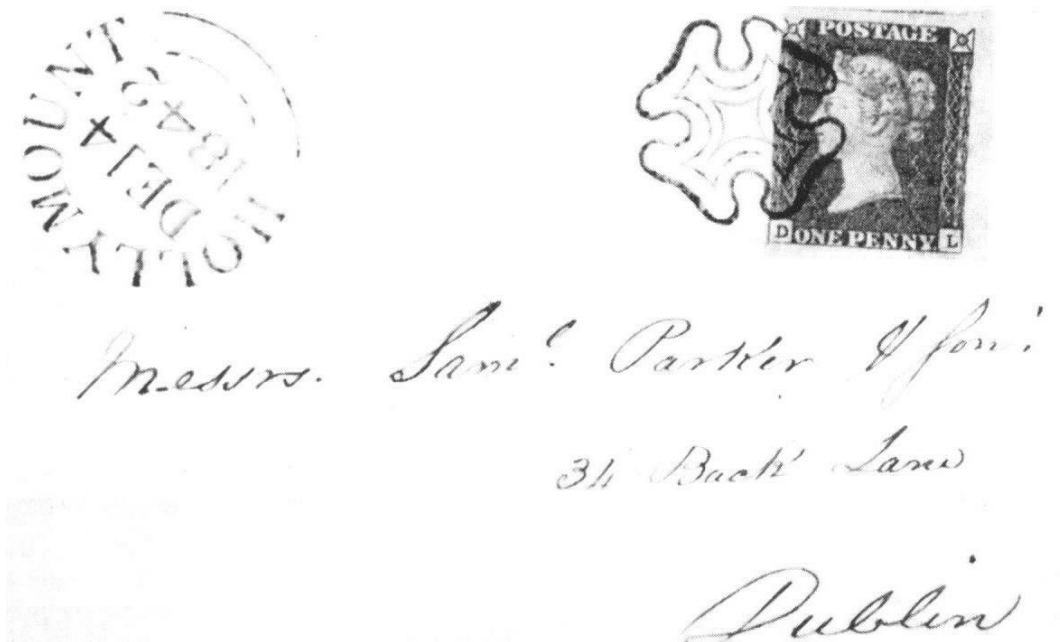 HOLLYMOUNT
DE 14
1842
POSTAGE
D ONE PENNY L
Messrs. Saml. Parker & Son
34 Back Lane
Dublin